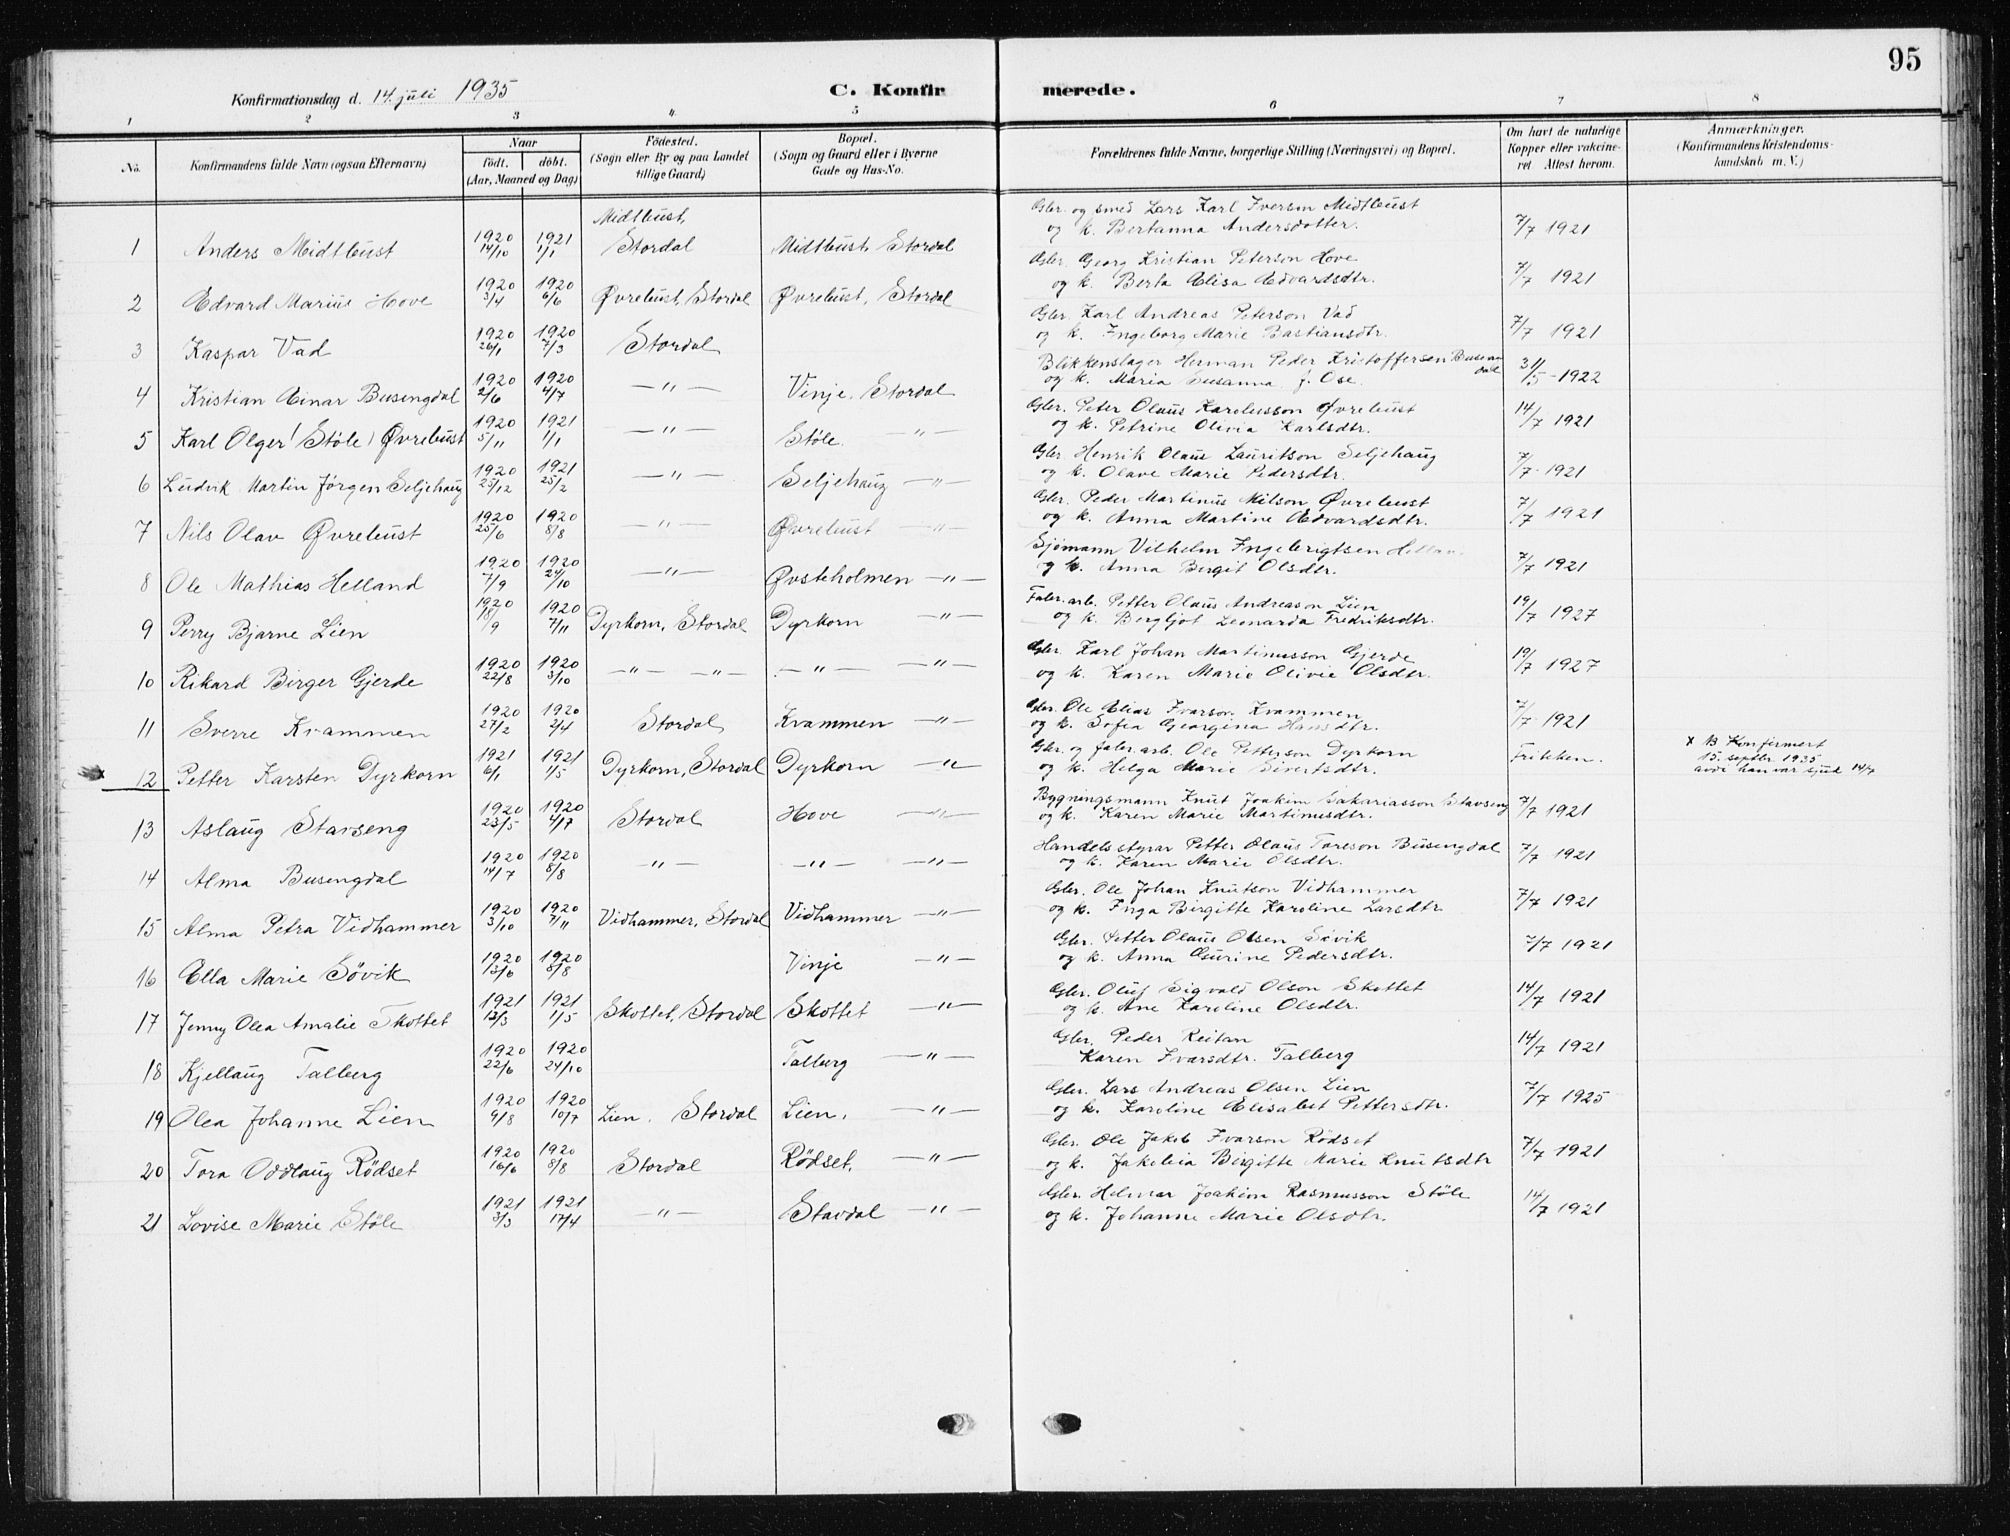 95
Konfirmationsdag d. 14. juli 1935 C. Konfir merede.
1 2 3 4 5 6 7 8
No. Konfirmandens fulde Navn (ogsaa Efternavn) Naar født. døbt. (Aar, Maaned og Dag) Fødested. (Sogn eller By og paa Landet tillige Gaard) Bopæl. (Sogn og Gaard eller i Byerne Gade og Hus-No. Forældrenes fulde Navne, borgerlige Stilling (Næringsvei) og Bopæl. Om havt de naturlige Kopper eller vakcineret Attest herom. Anmærkninger. (Konfirmandens Kristendomskundskab m. V.)
1 Anders Midtbust 1920 14/10 1921 1/1 Midtbust, Stordal Midtbust Stordal Gbr. og smed Lars Karl Iverson Midtbust og k. Bertanna Andersdotter. 7/7 1921
2 Edvard Marius Hove 1920 3/4 1920 6/6 Øvrebust, Stordal Øvrebust, Stordal Gbr. Georg Kristian Peterson Hove og k. Berta Elisa Edvardsdtr. 7/7 1921
3 Kaspar Vad 1920 26/1 1920 7/3 Stordal Gbr. Karl Andreas Peterson Vad og k. Ingeborg Marie Bastiansdtr. 7/7 1921
4 Kristian Einar Busengdal 1920 2/6 1920 4/7 —"— Vinje, Stordal Blikkenslager Herman Peder Kristoffersen og k. Maria Susanna f. Ose. 31/5-1922
5 Karl Olger (Støle) Øvrebust 1920 5/11 1921 1/1 —"— Støle. —"— Gbr. Peter Olaus Karolusson Øvrebust og k. Petrine Olivia Karlsdtr. 14/7 1921
6 Ludvik Martin Jørgen Seljehaug 1920 25/12 1921 25/2 —"— Seljehaug —"— Gbr. Henrik Olaus Lauritson Seljehaug og k. Olave Marie Pedersdtr. 7/7-1921
7 Nils Olav Øvrebust 1920 25/6 1920 8/8 —"— Øvrebust —"— Gbr. Peder Martinus Nilson Øvrebust og k. Anna Martine Edvardsdtr. 7/7 1921
8 Ole Mathias Helland 1920 7/9 1920 24/10 —"— Øvsteholmen —"— Sjømann Vilhelm Ingebrigtsen og k. Anna Bergit Olsdtr. 7/7 1921
9 Perry Bjarne Lien 1920 18/9 1920 7/11 Dyrkorn, Stordal Dyrkorn —"— Fabr.arb. Petter Olaus Andreason Lien og k. Bergljot Leonarda Fredriksdtr. 19/7 1927
10 Rikard Birger Gjerde 1920 22/8 1920 3/10 —"— —"— —"— —"— Gbr. Karl Johan Martinusson Gjerde og k. Karen Marie Olivie Olsdtr. 19/7 1927
11 Sverre Krammen 1920 27/2 1920 2/4 Stordal Krammen —"— Gbr. Ole Elias Ivarson Krammen og k. Sofia Georgina Hansdtr. 7/7-1921
x 12 Petter Karsten Dyrkorn 1921 6/1 1921 1/5 Dyrkorn, Stordal Dyrkorn —"— Gbr. og fabr.arb. Ole Petterson Dyrkorn og k. Helga Marie Sivertsdtr. Fritken. x 13 Konfirmert 15. septbr. 1935 avdi han var sjuk 14/7
13 Aslaug Stavseng 1920 23/5 1920 4/7 Stordal Hove —"— Bygningsmann Knut Joakim Sakariasson Stavseng og k. Karen Marie Martinusdtr. 7/7 1921
14 Alma Busengdal 1920 14/7 1920 8/8 —"— —"— —"— Handelsstyrar Petter Olaus Toreson Busengdal og k. Karen Marie Olsdtr. 7/7 1921
15 Alma Petra Vidhammer 1920 3/10 1920 7/11 Vidhammer, Stordal Vidhammer —"— Gbr. Ole Johan Knutson Vidhammer og k. Inga Birgitte Karoline Larsdtr 7/7 1921
16 Ella Marie Søvik 1920 13/6 1920 8/8 Vinje —"— Gbr. Petter Olaus Olsen Søvik og k. Anna Gurine Pedersdtr. 7/7 1921
17 Jenny Olea Amalie Skottet 1921 12/3 1921 1/5 Skottet, Stordal Skottet —"— Gbr. Oluf Sigvald Olson Skottet og k. Ane Karoline Olsdtr. 14/7 1921
18 Kjellaug Talberg 1920 22/6 1920 24/10 Talberg —"— Gbr. Peder Reitan Karen Ivarsdtr. Talberg 14/7 1921
19 Olea Johanne Lien 1920 9/8 1920 10/7 Lien, Stordal Lien, —"— Gbr. Lars Andreas Olsen Lien og k. Karoline Elisabet Pettersdtr. 7/7 1925
20 Tora Oddlaug Rödset 1920 16/6 1920 8/8 Stordal Rödset, —"— Gbr. Ole Jakob Ivarson Rödset og k. Jakobia Birgitte Marie Knutsdtr 7/7 1921
21 Lovise Marie Støle 1921 3/3 1921 17/4 —"— Stavdal —"— Gbr. Helmar Joakim Rasmusson Støle og k. Johanne Marie Olsdtr. 14/7 1921